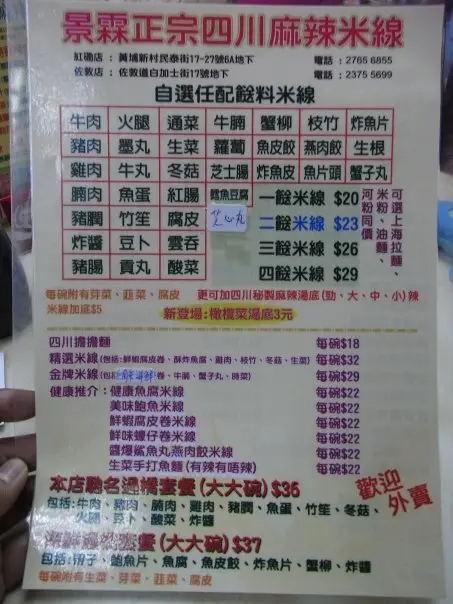 景霖正宗四川麻辣米線
紅磡店：黃埔新村民泰街17-27號6A地下 電話：2765 6855
佐敦店：佐敦道白加士街17號地下 電話：2375 5699
自選任配餸料米線
牛肉 火腿 通菜 牛腩 蟹柳 枝竹 炸魚片
豬肉 墨丸 生菜 蘿蔔 魚皮餃 燕肉餃 生根
雞肉 牛丸 冬菇 芝士腸 炸魚皮 魚片頭 蟹子丸
腩肉 魚蛋 紅腸 鱈魚豆腐
豬膶 竹笙 腐皮 芝心丸
炸醬 豆卜 雲吞
豬腸 貢丸 酸菜
一餸米線 $20
二餸米線 $23
三餸米線 $26
四餸米線 $29
可選上海拉麵、
米粉、油麵、
河粉同價
每碗附有芽菜、韮菜、腐皮
米線加底$5
更可加四川秘製麻辣湯底(勁、大、中、小)辣
新登場:橄欖菜湯底3元
四川擔擔麵 每碗$18
精選米線(包括:鮮蝦腐皮卷、酥炸魚腐、雞肉、枝竹、冬菇、生菜) 每碗$32
金牌米線(包括 卷、牛腩、蟹子丸、時菜) 每碗$29
健康推介：健康魚腐米線 每碗$22
美味鮑魚米線 每碗$22
鮮蝦腐皮卷米線 每碗$22
鮮味蠔仔卷米線 每碗$22
醬爆鯊魚丸燕肉餃米線 每碗$22
生菜手打魚麵(有辣有唔辣) 每碗$22
本店馳名過橋套餐(大大碗) $36
包括:牛肉、豬肉、腩肉、雞肉、豬膶、魚蛋、竹笙、冬菇、
火腿、豆卜、酸菜、炸醬
歡迎
外賣
套餐(大大碗) $37
包括:帶子、鮑魚片、魚腐、魚皮餃、炸魚片、蟹柳、炸醬
每碗附有生菜、芽菜、韮菜、腐皮